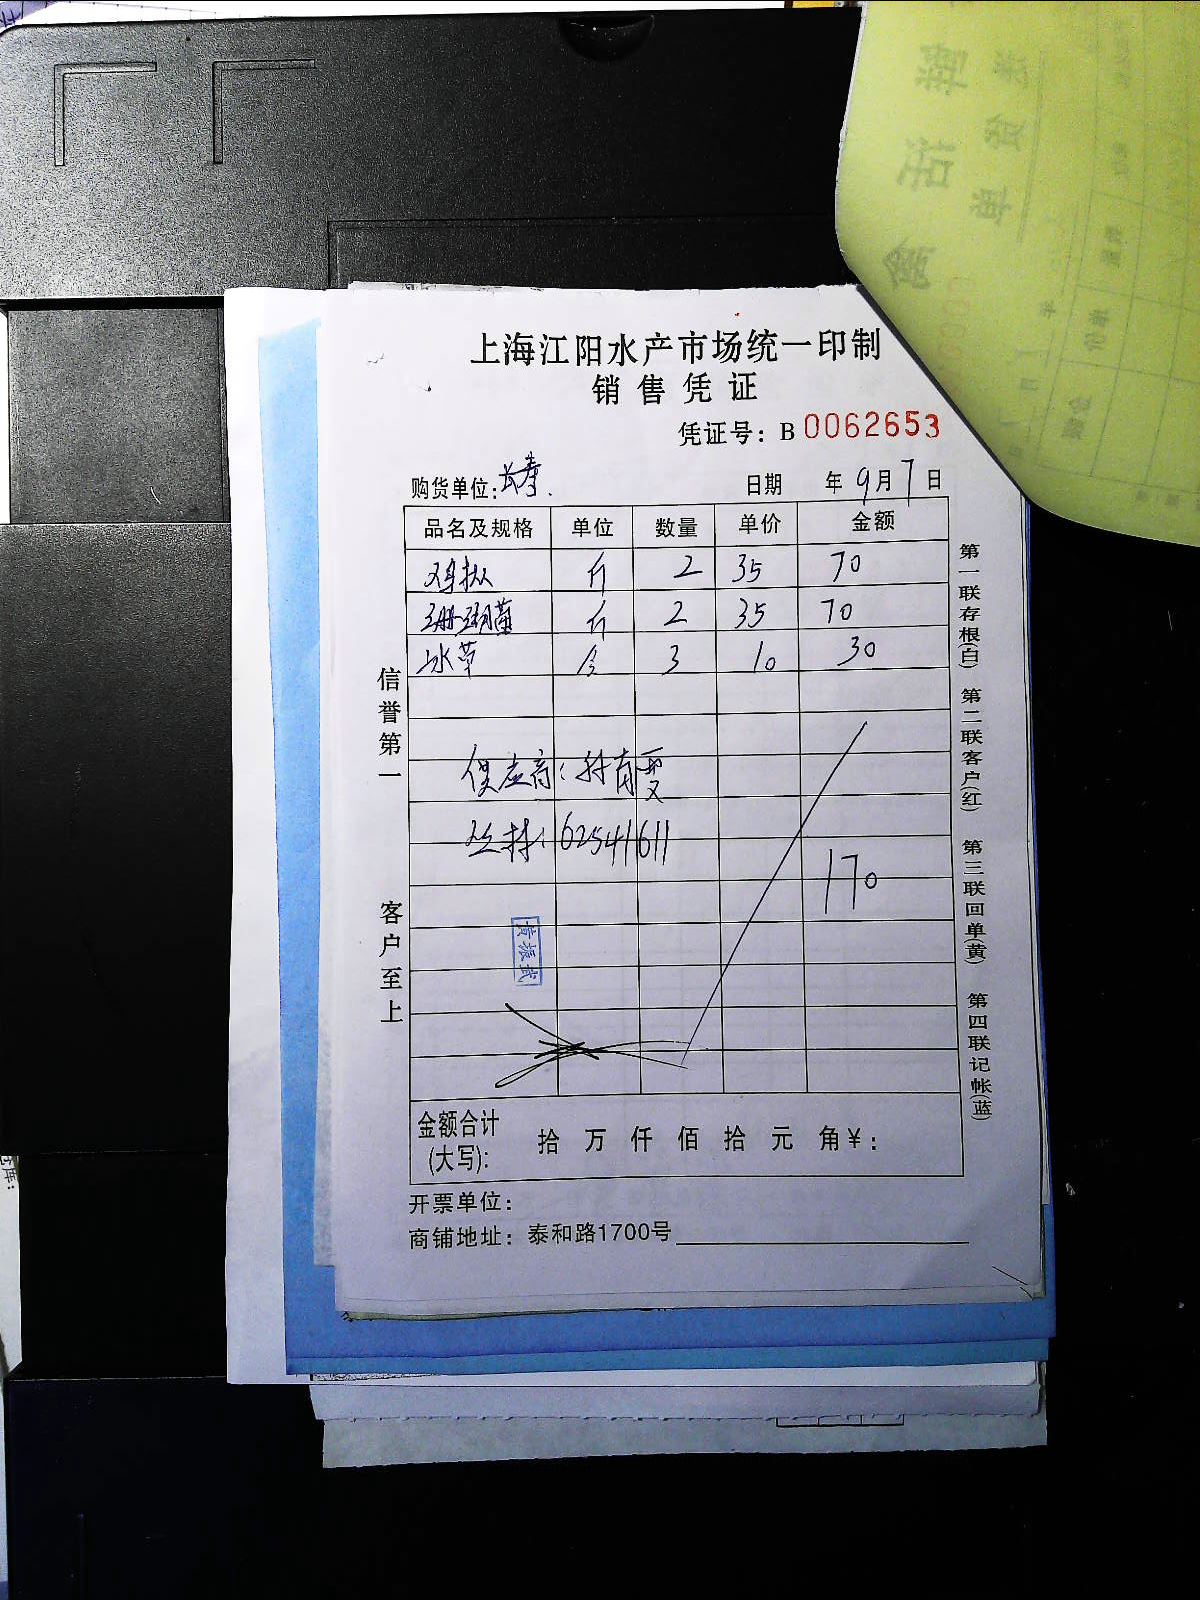 上海江阳水产市场统一印制
销售凭证
凭证号：B 0062653
购货单位：长寿. 日期 年9月7日
品名及规格 单位 数量 单价 金额
鸡枞 斤 2 35 70
珊瑚菌 斤 2 35 70
水草 合 3 10 30
供应商：
：62541611
170
黄振武
金额合计(大写)： 拾 万 仟 佰 拾 元 角 ¥：
开票单位：
商铺地址：泰和路1700号
信誉第一
客户至上
第一联存根(白) 第二联客户(红) 第三联回单(黄) 第四联记帐(蓝)